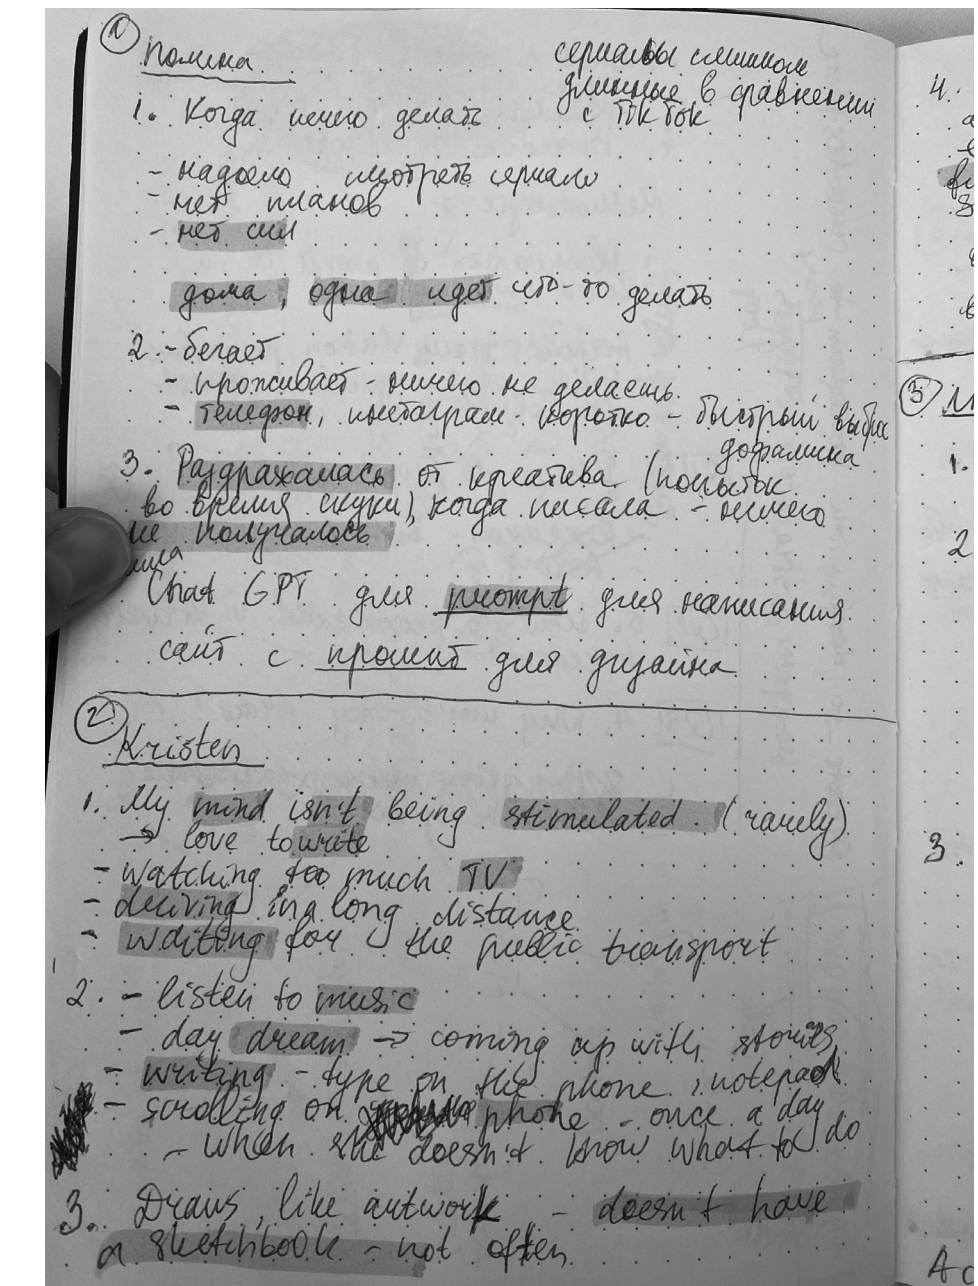 1
Полина
сериалы слишком
длинные в сравнении
с Тik Tok
1. Когда нечего делать
- надоело смотреть сериало
- нет планов
- нет сил
дома, одна идет что-то делать
2. - бегает
- проживает - ничего не делаешь.
- телефон, инстаграм - коротко - быстрый выброс
дофамина
3. Раздражалась от креатива (попыток
во время скуки), когда писала - ничего
не получалось
Chat GPT для prompt для написания
сайт с промпт для дизайна
2
Kristen
1. My mind isn't being stimulated. (rarely)
→ love to write
- watching too much TV
- driving in a long distance
- waiting for the public transport
2. - listen to music
- day dream → coming up with stories
- writing - type on the phone, notepad
- scrolling on phone - once a day
- when she doesn't know what to do
3. Draws, like artwork - doesn't have
a sketchbook - not often
4.
3
1.
2
3.